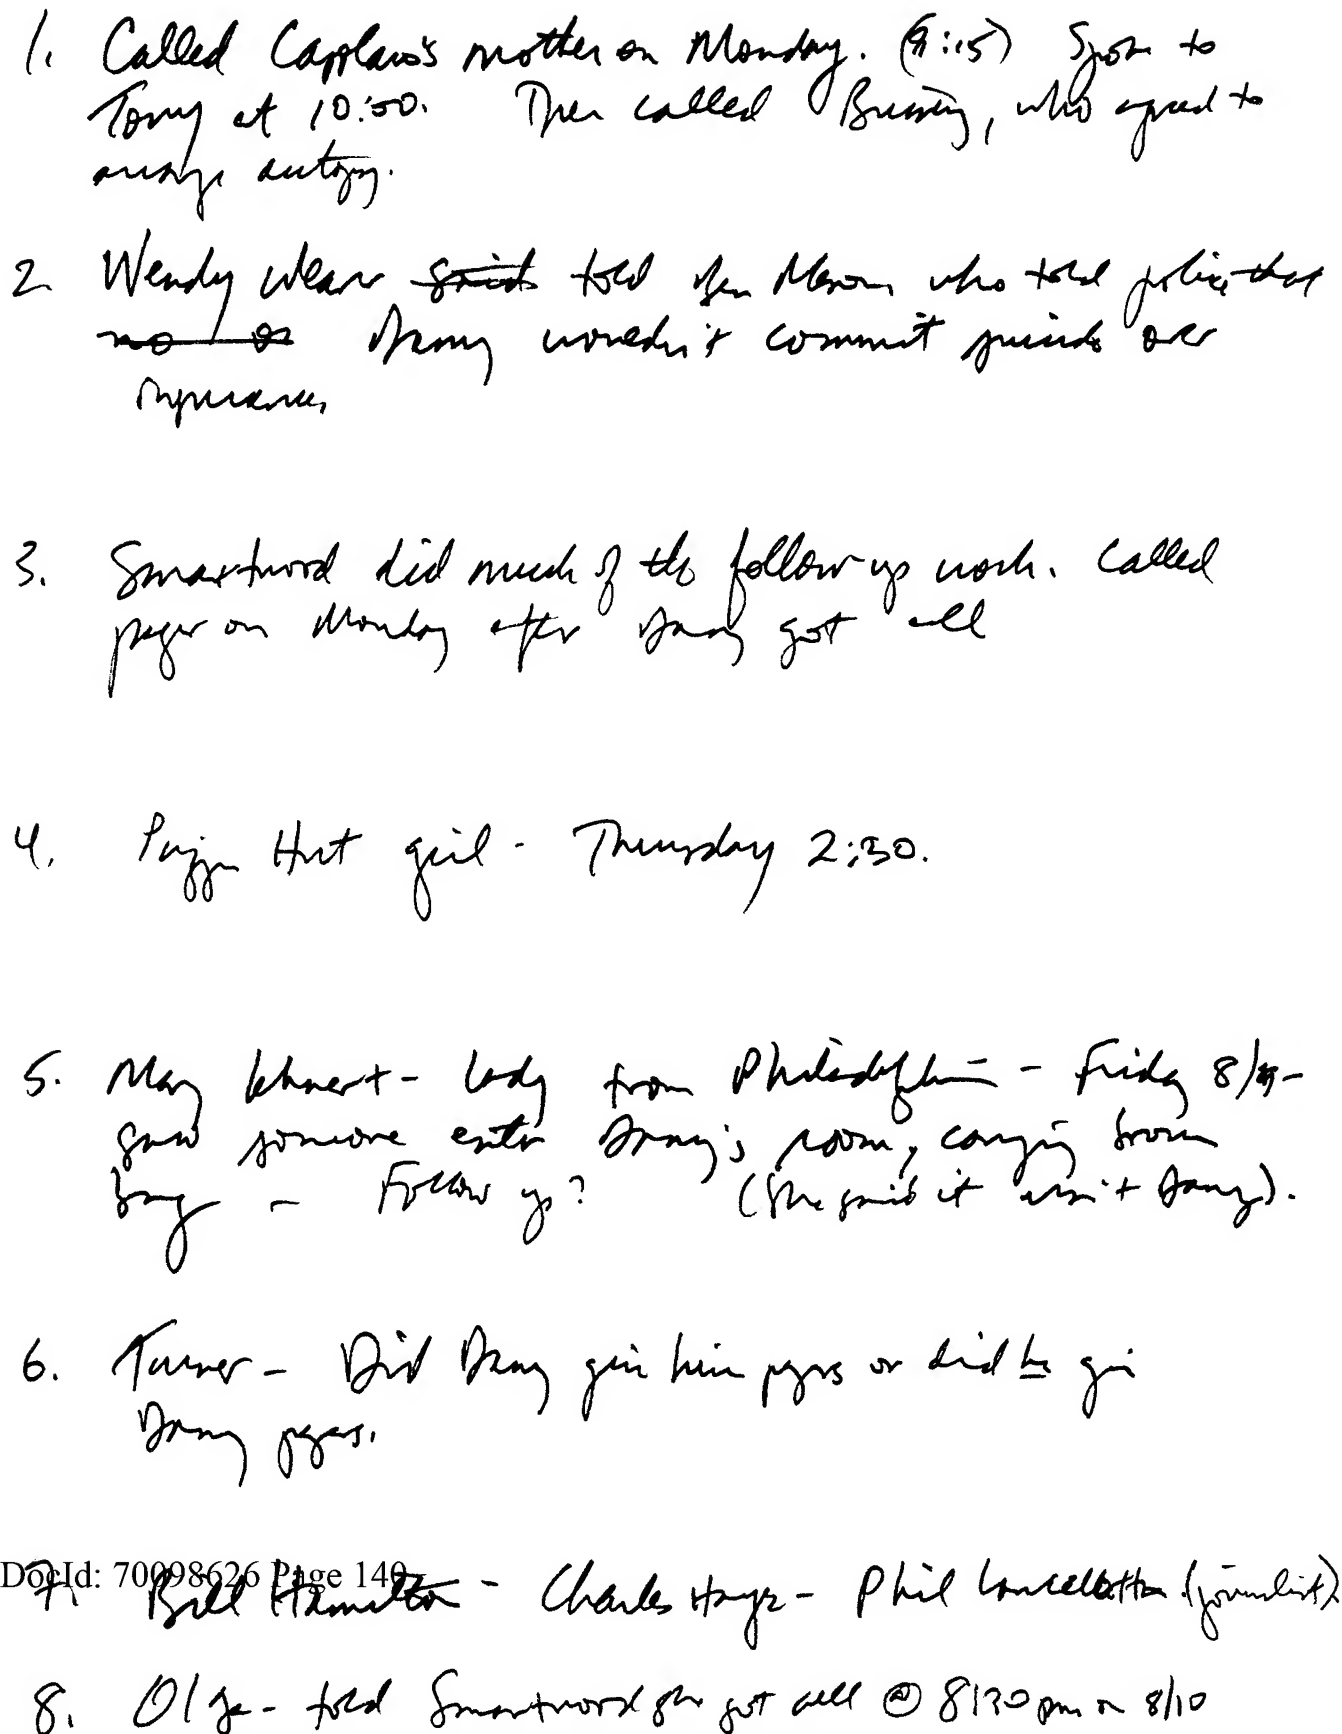 1. Called Capplaro's mother on Monday. (9:15) Spoke to
Tony at 10:50. Then called Brining, who agreed to
arrange autopsy.
2. Wendy Weaver said told Ben Mason who told police that
no Danny wouldn't commit suicide over
insurance.
3. Smartwood did much of the follow up work. Called
pager on Monday after Danny got call
4. Pizza Hut girl - Thursday 2:30.
5. Mary - lady from Philadelphia - Friday 8/9 -
saw someone enter Danny's room, carrying brown
bag - Follow up? (She said it wasn't Danny).
6. Turner - Did Danny give him papers or did he give
Danny papers.
DocId: 70098626 Page 140
7. Bill Hamilton - Charles Hayes - Phil Lancellotta (journalist)
8. Olga - told Smartwood she got call @ 8:30 pm on 8/10